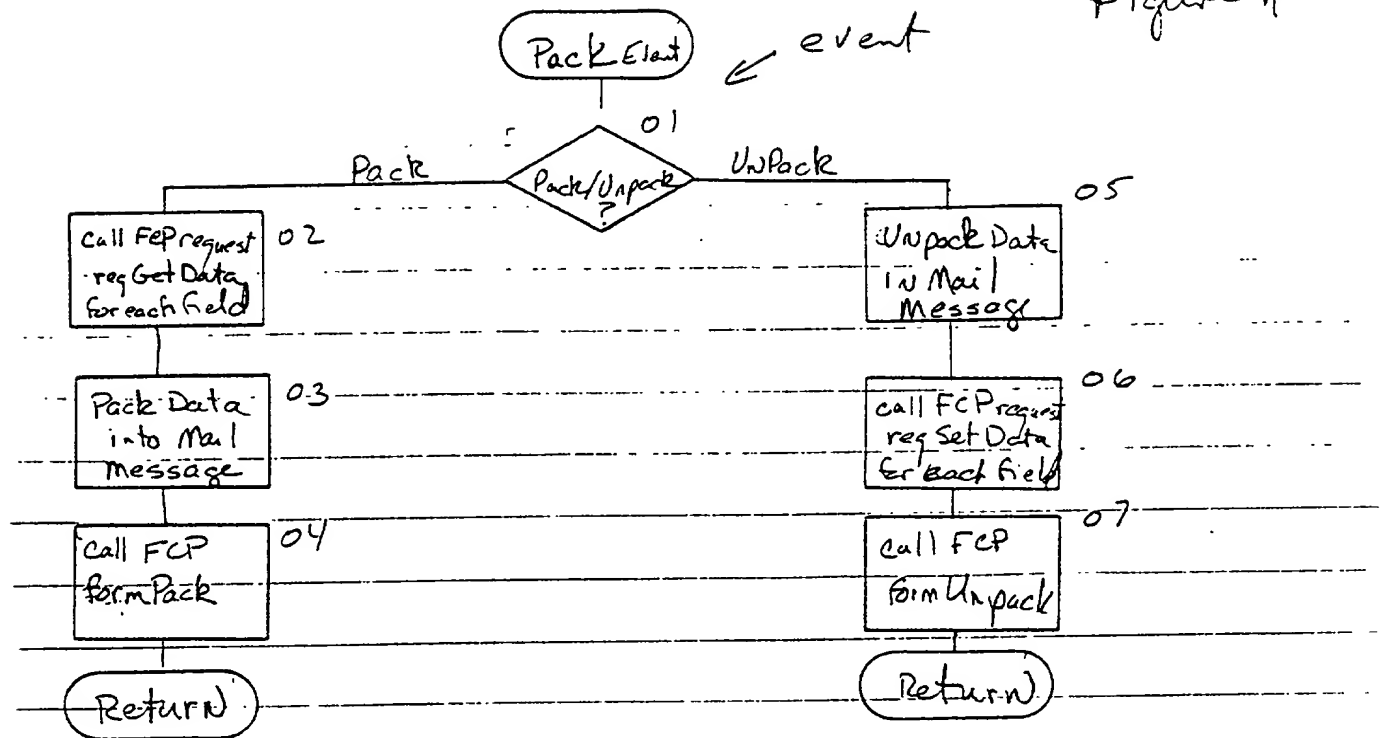 Figure
Pack Elent
event
01
Pack/Unpack
?
Pack
UNPack
call FCP request
req Get Data
for each field
02
Pack Data
into Mail
Message
03
call FCP
formPack
04
Return
05
UNpack Data
IN Mail
Message
06
call FCP request
req Set Data
for each field
07
call FCP
form Unpack
Return